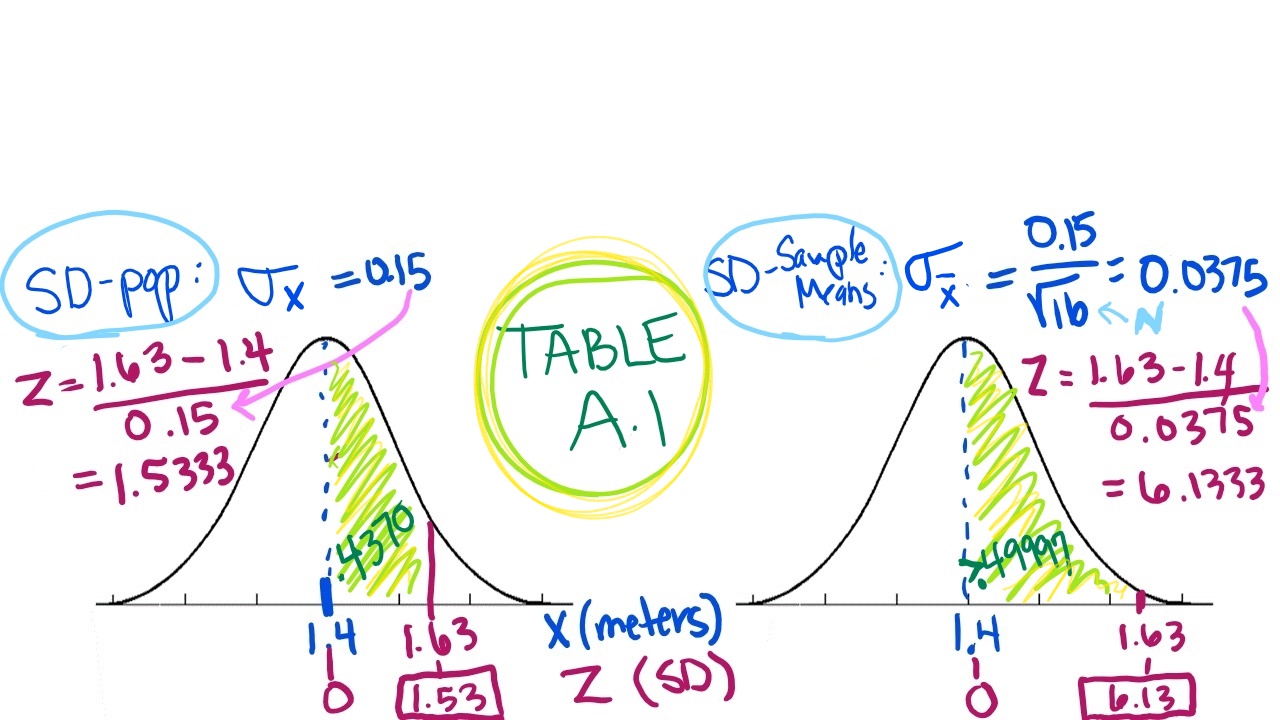 SD-pop: σx = 0.15
Z = 1.63 - 1.4
0.15
= 1.5333
.4370
1.4
1.63
0
1.53
TABLE
A.1
X (meters)
Z (SD)
SD-Sample Means: σx̄ = 0.15
√16 ← N
= 0.0375
Z = 1.63 - 1.4
0.0375
= 6.1333
>.49997
1.4
1.63
0
6.13